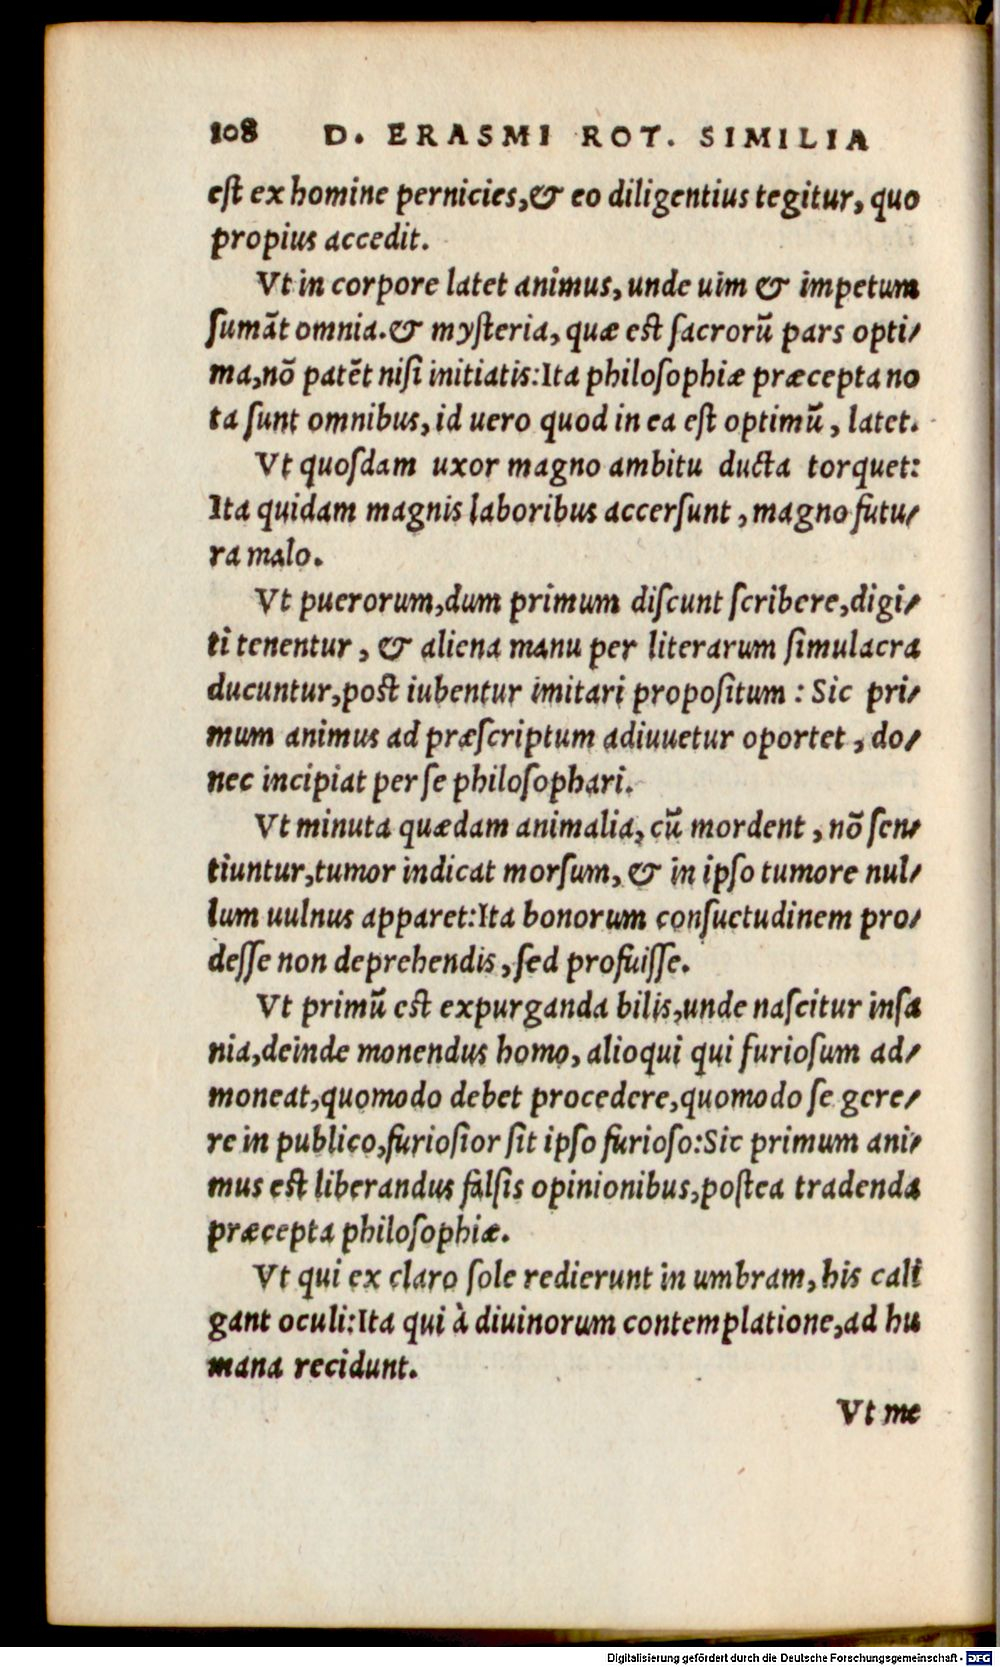 108 D. ERASMI ROT. SIMILIA
est ex homine pernicies,& eo diligentius tegitur, quo
propius accedit.
Vt in corpore latet animus, unde uim & impetum
ſumāt omnia.& myſteria, quæ est ſacrorū pars opti/
ma,nō patēt niſi initiatis:Ita philoſophiæ præcepta no
ta ſunt omnibus, id uero quod in ea eſt optimū, latet.
Vt quoſdam uxor magno ambitu ducta torquet:
Ita quidam magnis laboribus accerſunt, magno futu/
ra malo.
Vt puerorum,dum primum diſcunt ſcribere,digi/
ti tenentur, & aliena manu per literarum ſimulacra
ducuntur,post iubentur imitari propoſitum : Sic pri/
mum animus ad præſcriptum adiuuetur oportet, do/
nec incipiat per ſe philoſophari.
Vt minuta quædam animalia, cū mordent, nō ſen/
tiuntur,tumor indicat morſum, & in ipſo tumore nul/
lum uulnus apparet:Ita bonorum conſuetudinem pro/
deſſe non deprehendis, ſed profuiſſe.
Vt primū est expurganda bilis,unde naſcitur inſa
nia,deinde monendus homo, alioqui qui furioſum ad/
moneat,quomodo debet procedere,quomodo ſe gere/
re in publico,furioſior ſit ipſo furioſo:Sic primum ani/
mus est liberandus falſis opinionibus,poſtea tradenda
præcepta philoſophiæ.
Vt qui ex claro ſole redierunt in umbram, his cali
gant oculi:Ita qui à diuinorum contemplatione,ad hu
mana recidunt.
Vt me
Digitalisierung gefördert durch die Deutsche Forschungsgemeinschaft - DFG